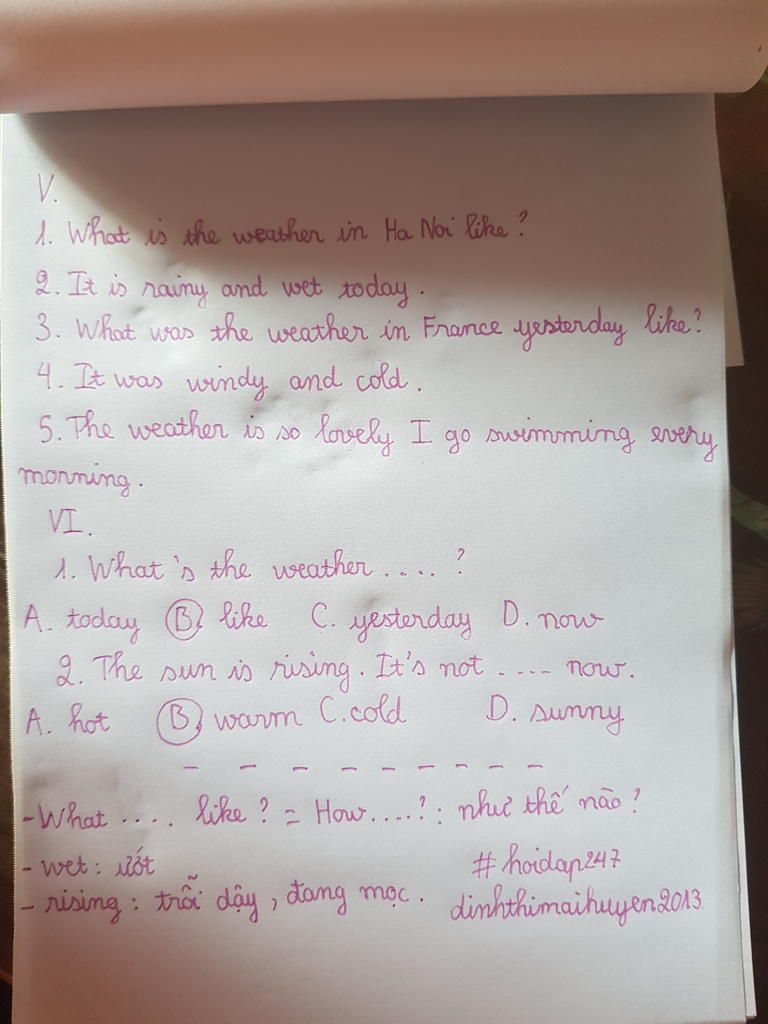 V.
1. What is the weather in Ha Noi like?
2. It is rainy and wet today.
3. What was the weather in France yesterday like?
4. It was windy and cold.
5. The weather is so lovely I go swimming every
morning.
VI.
1. What's the weather .... ?
A. today B. like C. yesterday D. now
2. The sun is rising. It's not .... now.
A. hot B. warm C. cold D. sunny
- - - - - - - -
- What .... like? = How....?: như thế nào?
- wet: ướt
#hoidap247
- rising: trỗi dậy, đang mọc.
dinhthimaihuyen2013